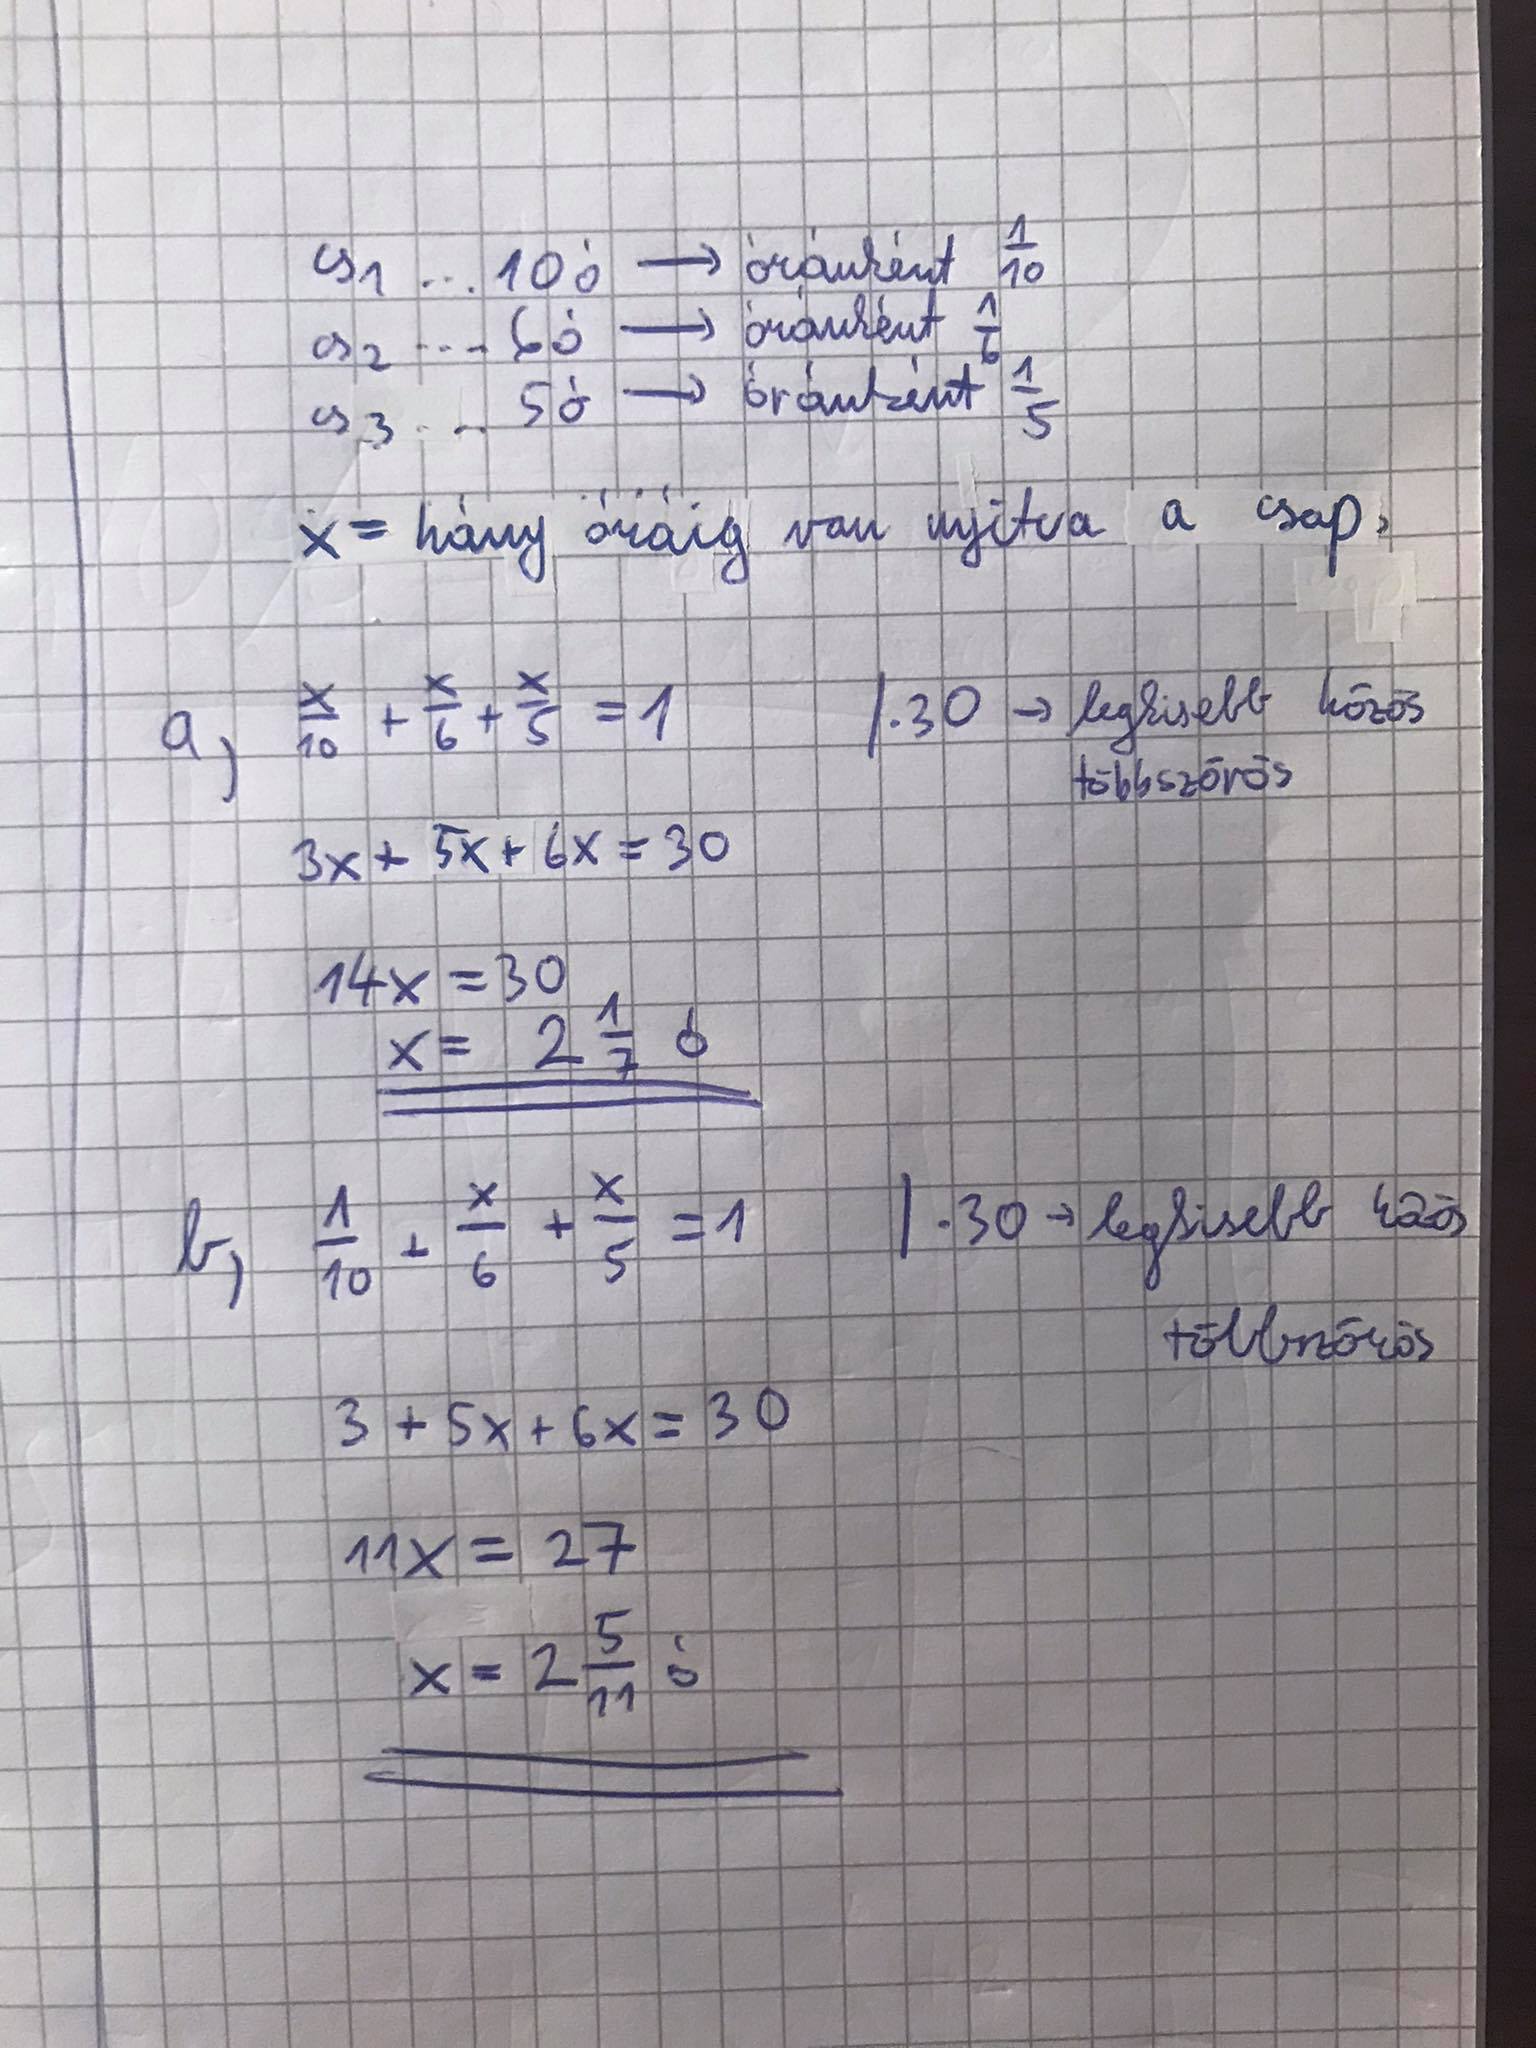 cs1 ... 10ó → óránként 1/10
cs2 ... 6ó → óránként 1/6
cs3 ... 5ó → óránként 1/5
x = hány óráig van nyitva a csap.
a, x/10 + x/6 + x/5 = 1 /·30 → legkisebb közös
többszörös
3x + 5x + 6x = 30
14x = 30
x = 2 1/7 ó
b, 1/10 + x/6 + x/5 = 1 /·30 → legkisebb közös
többszörös
3 + 5x + 6x = 30
11x = 27
x = 2 5/11 ó